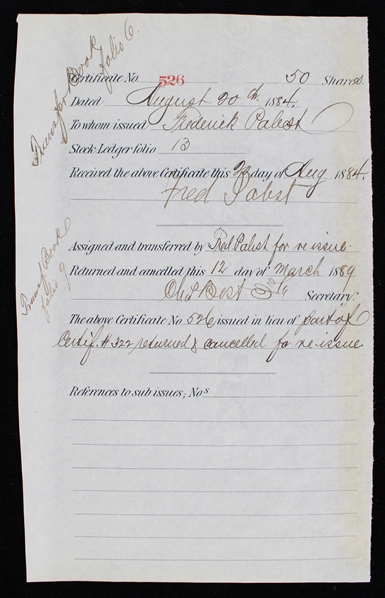 Transfer Book
folio 6.
Certificate No. 526 50 Shares.
Dated August 20th, 1884.
To whom issued Frederick Pabst
Stock Ledger folio 13
Received the above Certificate this day of Aug 1884.
Fred Pabst
Transf Book
folio 9
Assigned and transferred by Fred Pabst for re issue.
Returned and cancelled this 12 day of March 1889
Chs Best Secretary.
The above Certificate No 526 issued in lieu of part of
Certif. # 322 returned & cancelled for re-issue
References to sub issues; Nos